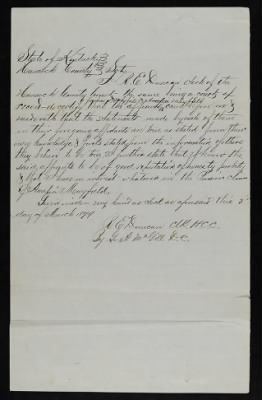 State of Kentucky
Hancock County Sct
I R E Duncan clerk of the
Hancock County Court the same being a court of
record do certify that the
made oath that the statements made by each of them
in their foregoing affidavits are true as stated from their
own knowledge & those stated from the information of others
they believe to be true I further state that I know the
said affiants to be of good reputation
& that I have no interest whatever in the Pension Claim
of Mayfield
Given under my hand as clerk as aforesaid this 3
day of March 1879
R E Duncan Clk H.C.C.
By D.C.